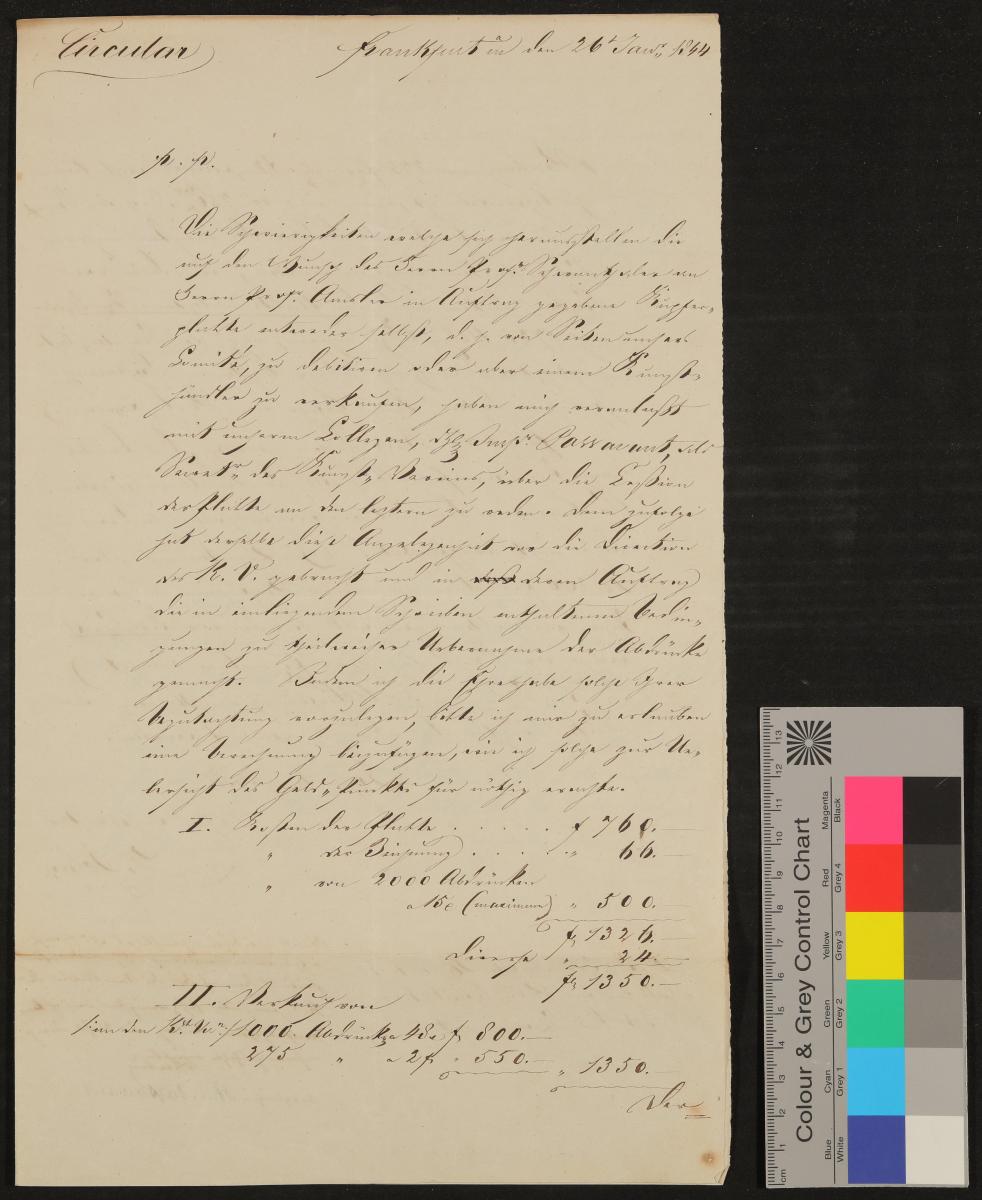 Circular
Frankfurt a/m den 26t Janr. 1844
p. p.
Die Schwierigkeiten welche sich herausstellen die
auf den Wunsch des Herrn Profr. Schwanthaler an
Herrn Profr. Amsler in Auftrag gegebene Kupfer„
platte entweder selbst, d. h. von Seiten unsers
Comité, zu debitiren oder aber einem Kunst„
händler zu verkaufen, haben mich veranlasst
mit unserm Collegen, Inspr. Passavant, als
Secretr. des Kunst„Vereins, über die Cession
der Platte an den letztern zu reden. Dem zufolge
hat derselbe diese Angelegenheit vor die Direction
des K. V. gebracht und in deren Auftrag
die in einliegendem Schreiben enthaltenen Bedin„
gungen zu theilweiser Uebernahme der Abdrücke
gemacht. Indem ich die Ehre habe solche Ihrer
Begutachtung vorzulegen, bitte ich mir zu erlauben
eine Berechnung beizufügen, wie ich solche zur Ue„
bersicht des Geld„Punktes für nöthig erachte.
I. Kosten der Platte . . . . . f 760.—
„ der Zeichnung . . . . . „ 66.—
„ von 2000 Abdrücken
a 15 (maximum) „ 500.—
f 1326.—
Diverse „ 24.—
f 1350.—
II. Verkauf von
/:an den Kst. Ver:/ 1000. Abdrücke a 48 f 800.—
275 „ a 2f „ 550.—
„ 1350.—
Der